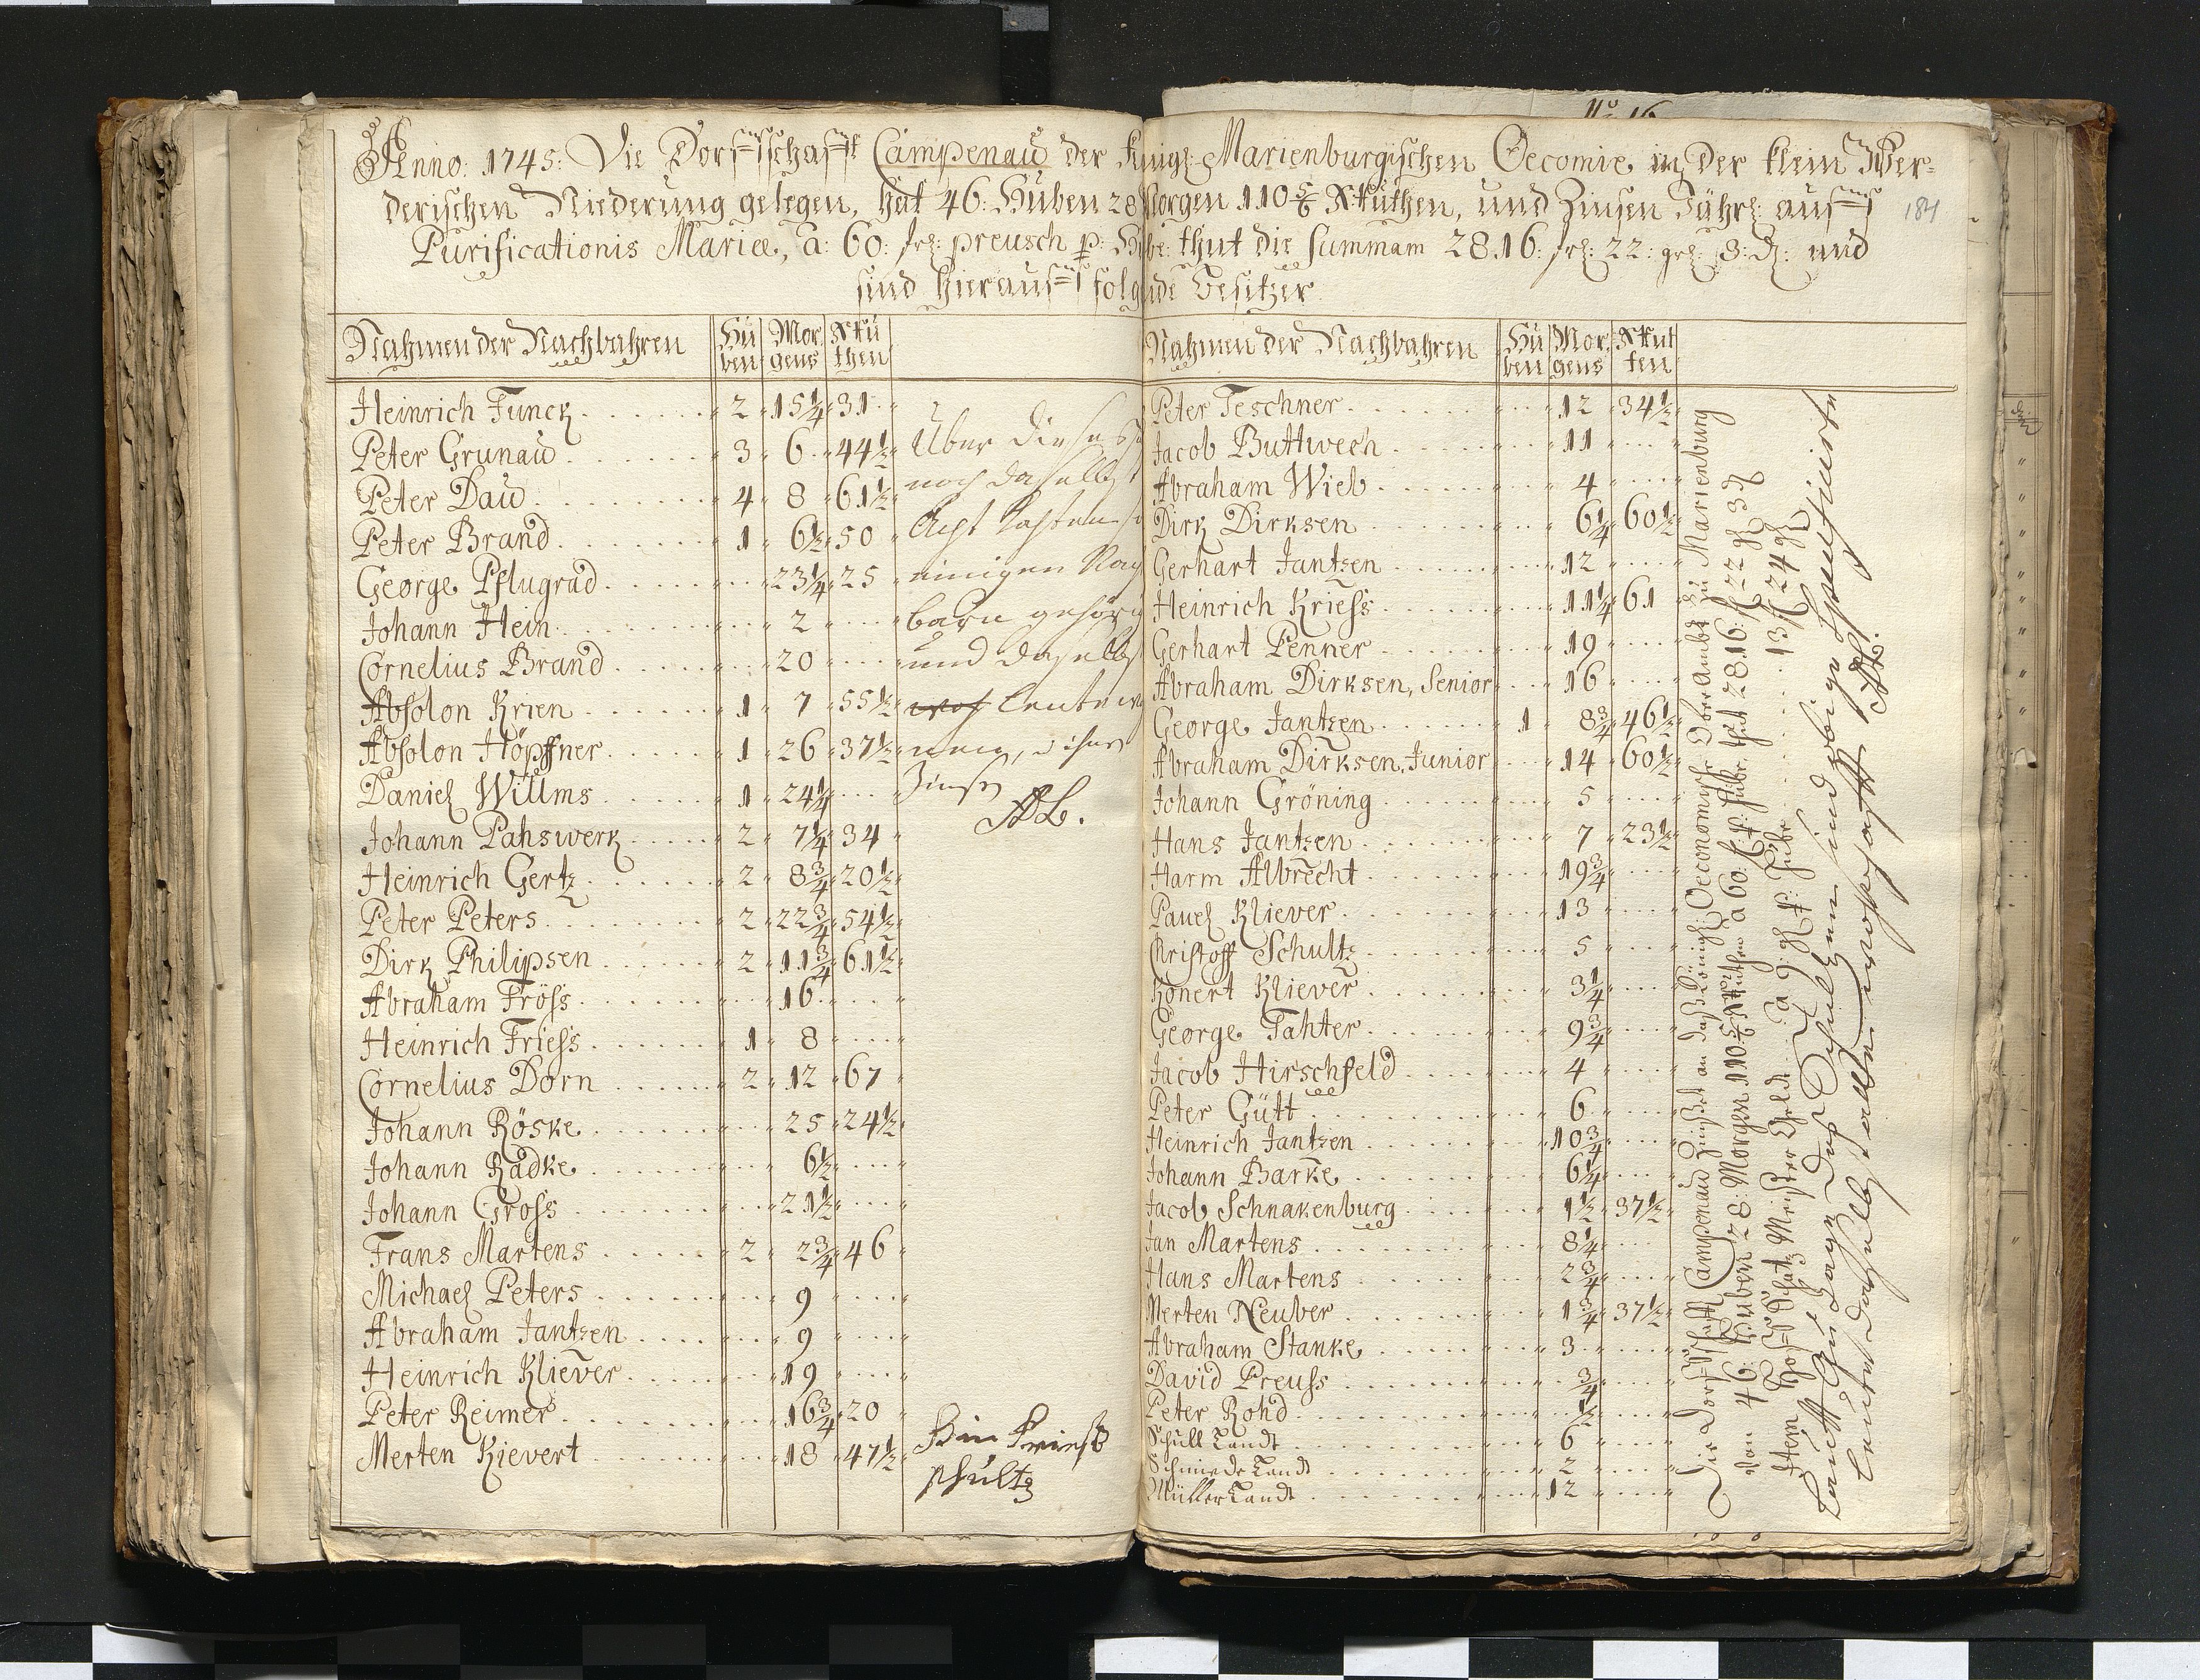 Anno: 1745: Die Dorffschafft Campenau der Königl: Marienburgischen Oecomie in der klein Wer-
derischen Niederung gelegen, hat 46: Huben 28 Morgen 110 5/6 Ruthen, und Zinsen Jährl: auff
Purificationis Mariæ, a: 60: fl: preusch p: Hube: thut die Summam 2816: fl: 22: gr: 3: d: und
sind hierauff folgende Besitzer
184
Nahmen der Nachbahren Hu ben Mor gens Ru then
Heinrich Funck 2 15 1/4 31
Peter Grunau 3 6 44 1/2
Peter Dau 4 8 61 1/2
Peter Brand 1 6 1/2 50
George Pflugrad 23 1/4 25
Johann Hein 2
Cornelius Brand 20
Absolon Krien 1 7 55 1/2
Absolon Höpffner 1 26 37 1/2
Daniel Willms 1 24 1/4
Johann Pahswerk 2 7 1/4 34
Heinrich Gertz 2 8 3/4 20 1/2
Peter Peters 2 22 3/4 54 1/2
Dirk Philipsen 2 11 3/4 61 1/2
Abraham Fröss 16
Heinrich Friess 1 8
Cornelius Dorn 2 12 67
Johann Röske 25 24 1/2
Johann Radke 6 1/2
Johann Gross 21 1/2
Frans Martens 2 2 3/4 46
Michael Peters 9
Abraham Jantzen 9
Heinrich Kliever 19
Peter Reimer 16 3/4 20
Merten Kievert 18 47 1/2
Über dieses
noch daselbst
Acht Kathen
einigen Nach
barn gehörig
und daselbst
Leute
Zinsen
AL.
schultz
Nahmen der Nachbahren Hu ben Mor gens Rut ten
Peter Teschner 12 34 1/2
Jacob Buttwech 11
Abraham Wieb 4
Dirk Dirksen 6 1/4 60 1/2
Gerhart Jantzen 12
Heinrich Kriess 11 1/4 61
Gerhart Penner 19
Abraham Dirksen, Senior 16
George Jantzen 1 8 3/4 46 1/2
Abraham Dirksen, Junior 14 60 1/2
Johann Gröning 5
Hans Jantzen 7 23 1/2
Harm Albrecht 19 3/4
Pauel Kliever 13
Kristoff Schultz 5
Konert Kliever 3 1/4
George Fahter 9 3/4
Jacob Hirschfeld 4
Peter Gütt 6
Heinrich Jantzen 10 3/4
Johann Barke 6 1/4
Jacob Schnakenburg 1 1/2 37 1/2
Jan Martens 8 1/4
Hans Martens 2 3/4
Merten Neuber 1 3/4 37 1/2
Abraham Stanke 3
David Preuss 3/4
Peter Rohd 1/2
Schull Landt 6
Schmiede Landt 2
Müller Landt 12
Die Dorffschafft Campenau Zinset an das Königl: Oeconomische Ober Ambt zu Marienburg
Von 46 Huben 28: Morgen 110 5/6 Ruthen a 60: fl p: Hube, thut 2816: fl 22 gr 3 d
Item Hoff Schatz Meister Geldt a 9: gr p: Hube 13 fl 24 gr
Laut Aus Sage des Schultzen sind obige
Leute daselbst wohnhafft AL.